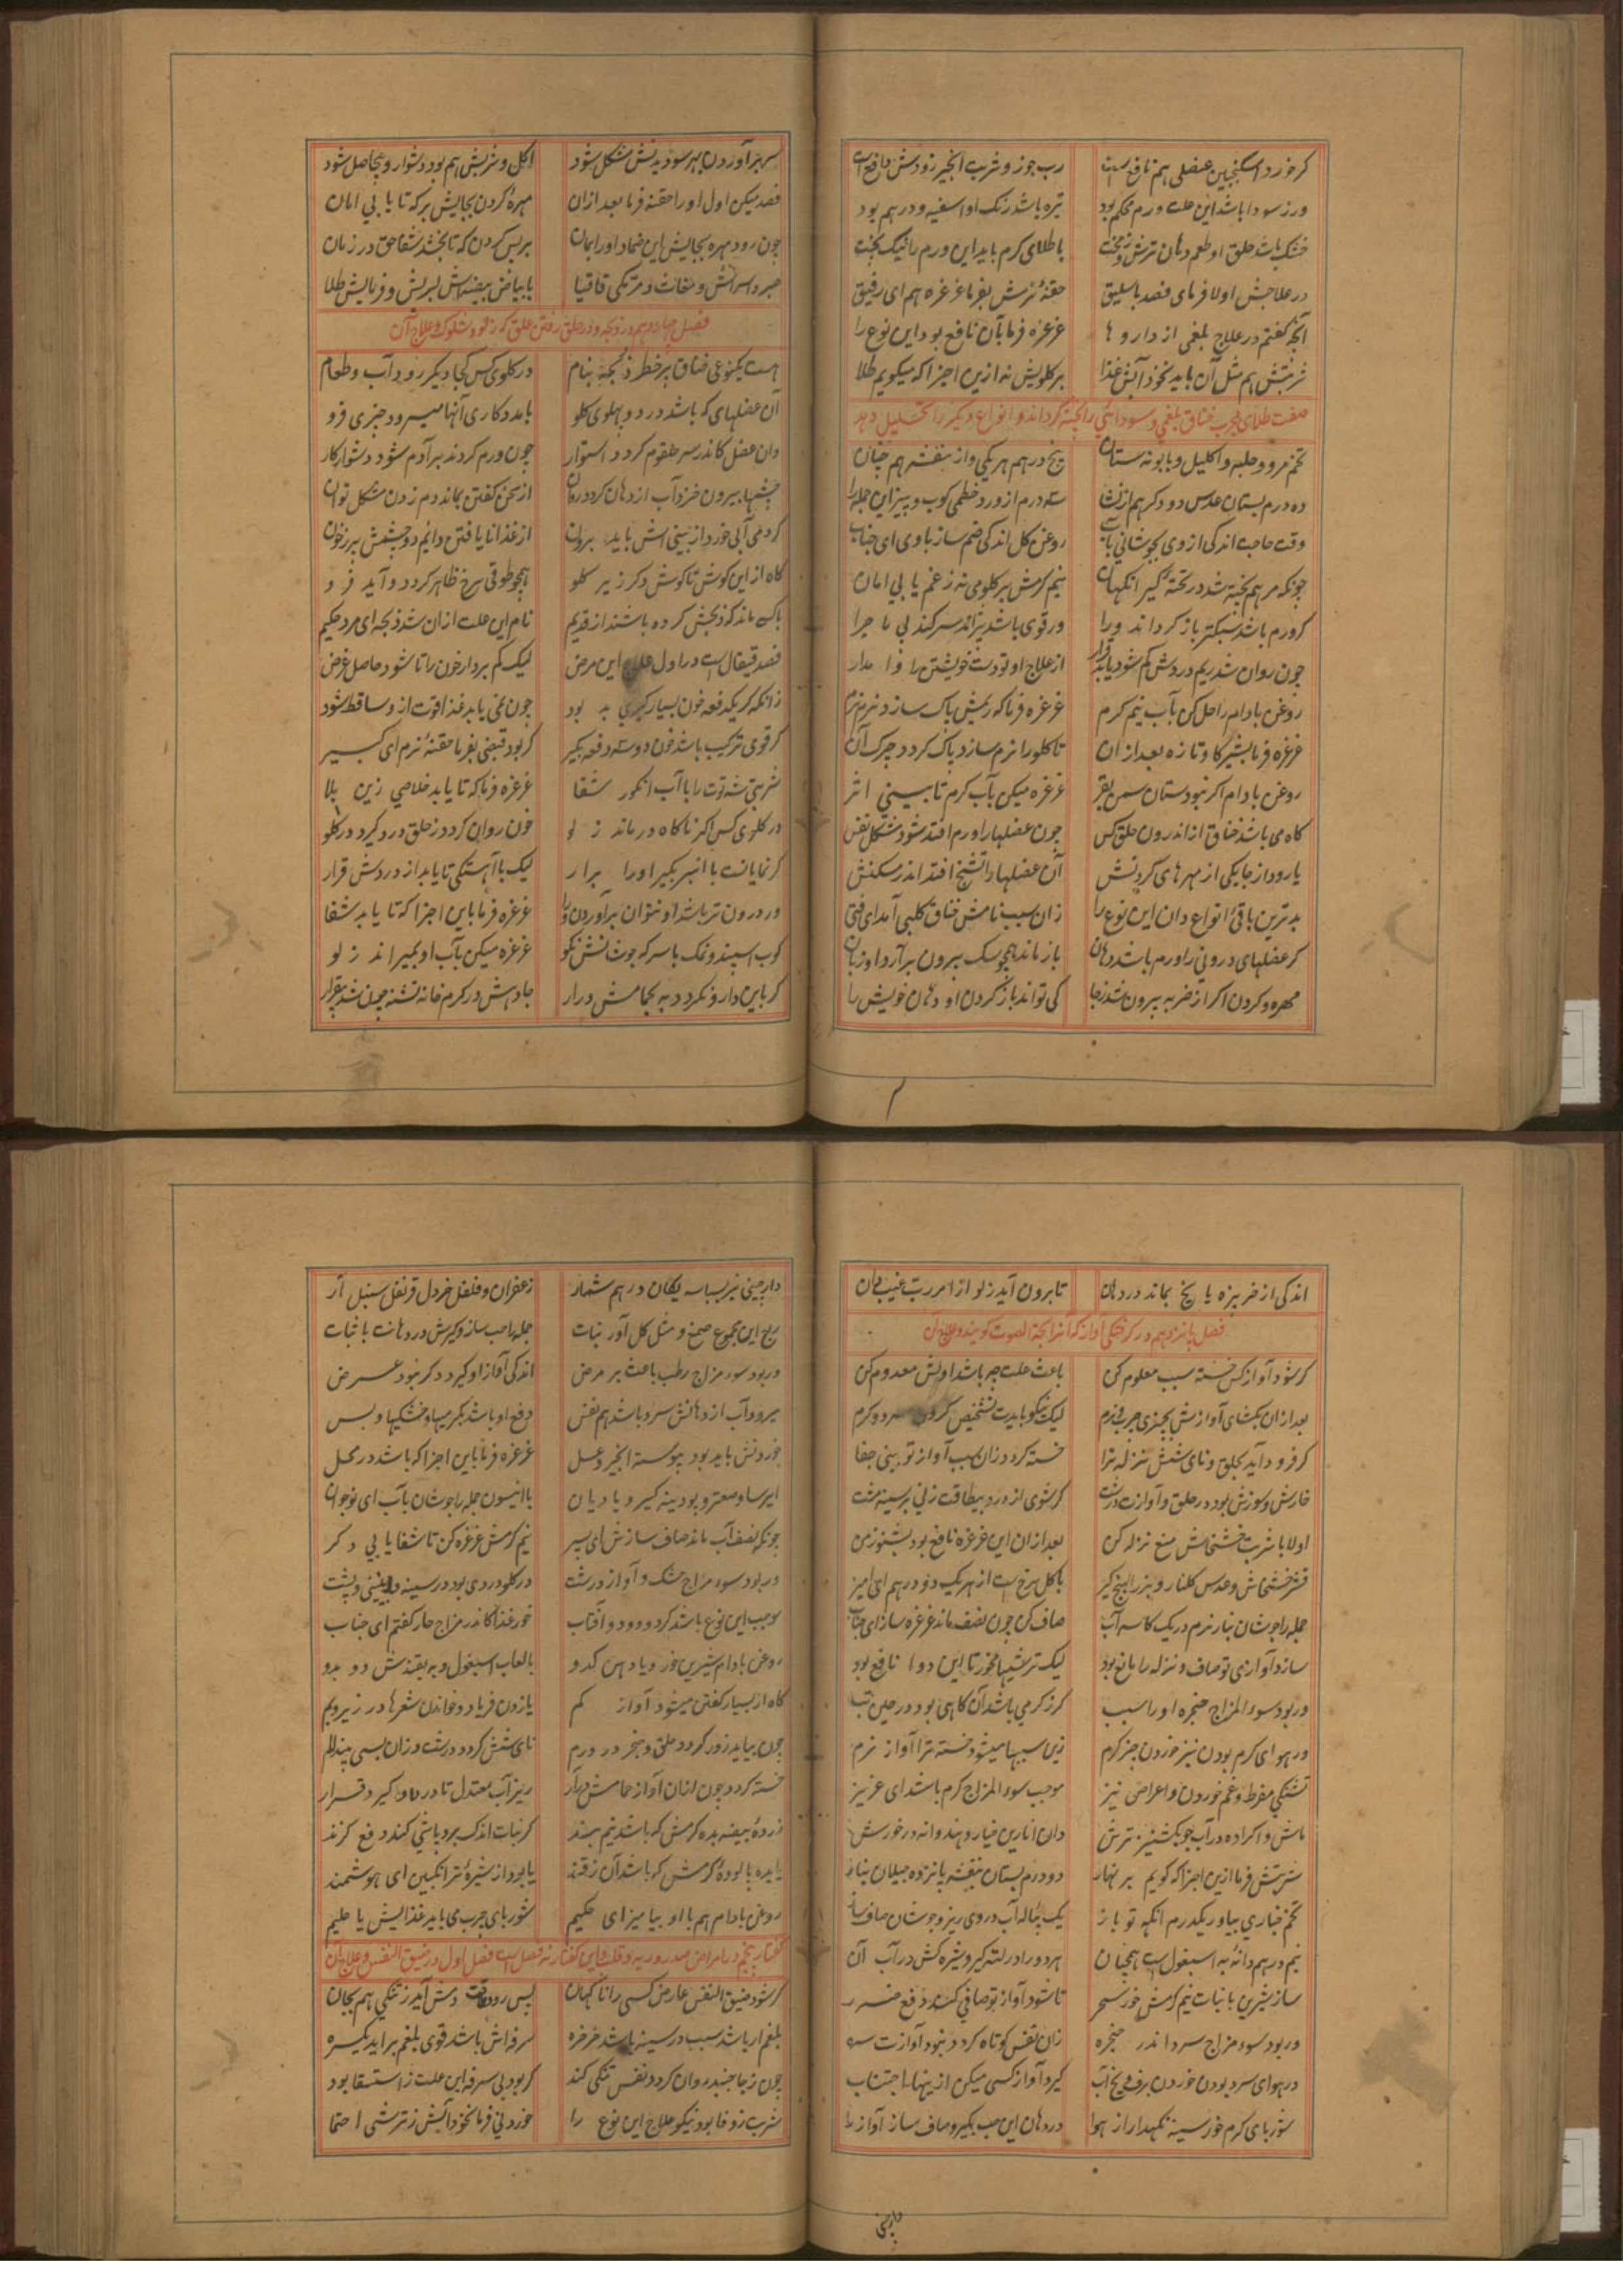 گر خورد اسکنجبین عنصلی هم نافع است رب جوز و شربت انجیر زودش دافع است
ور ز سودا باشد این علت ورم محکم بود تیره باشد رنگ او اسفیه و درهم بود
خشک باشد حلق او طعم دهان ترش و زمخت باطلای گرم باید این ورم را نیک پخت
در علاجش اولا فرمای فصد باسلیق حقنهٔ نرمش بفرما غرغره هم ای رفیق
آنچه گفتم در علاج بلغمی از داروها غرغره فرما بآن نافع بود این نوع را
شربتش هم مثل آن باید نخود آبش غذا بر گلویش نه ازین اجزا که میگویم طلا
صفت طلای مجرب خناق بلغمی و سودائی را پخته گرداند و انواع دیگر را تحلیل دهد
تخم مرو و حلبه و اکلیل و بابونه ستان پنج درهم هر یکی و از بنفشه هم چنان
ده درم بستان عدس دو دگر هم از نشا سه درم از ورد خطمی کوب و بیز این جمله را
وقت حاجت اندکی از وی بجوشانی بآب روغن گل اندکی ضم ساز با وی ای جناب
چونکه مرهم پخته شد در تخته گیر انگهان نیم گرمش بر گلو می نه ز غم یابی امان
گر ورم باشد سبکتر باز گرداند ورا ور قوی باشد پزاند سر کند بی ماجرا
چون روان شد ریم و دردش کم شود یابد قرار از علاج او تو دست خویشتن را وا مدار
روغن بادام را حل کن بآب نیم گرم غرغره فرما که ریمش پاک سازد نرم نرم
غرغره فرما بشیر گاو تازه بعد از آن تا گلو را نرم سازد پاک گردد چرک آن
روغن بادام اگر نبود ستان سمن بقر غرغره میکن بآب گرم تا بینی اثر
گاه می باشد خناق از اندرون حلق کس چون عضلها را ورم افتد شود مشکل نفس
یا رود از جا یکی از مهرهای گردنش آن عضلها را تشنج افتد اندر سکنش
بدترین باقی انواع دان این نوع را زان سبب نامش خناق کلبی آمد ای فتی
گر عضلهای درونی را ورم باشد دهان باز ماند همچو سک بیرون بر آرد او زبان
مهره و گردن اگر از ضربه بیرون شد ز جا کی تواند باز کردن او دهان خویش را
سر برآوردن بهر سو دیدنش مشکل شود اکل و شربش هم بود دشوار و بیحاصل شود
فصد میکن اول او را حقنه فرما بعد ازان مهرهٔ گردن بجایش بر که تا یابی امان
چون رود مهره بجایش این ضماد او را بمان بر پس گردن که تا بخشد شفا حق در زمان
صبر و سرائش و مغاث و مرتکی قاقیا با بیاض بیضه اش بسریش و فرمایش طلا
فصل چهاردهم در ذبحه و در حلق رفتن علق که زلو و شلوک و علاج آن
هست یکنوعی خناق پر خطر ذبحه بنام در گلوی کس کجا دیگر رود آب و طعام
آن عضلهای که باشد در دو پهلوی گلو با مددکاری آنها میرود چیزی فرو
دان عضل کاندر سر حلقوم گردد استوار چون ورم کردند بر آدم شود دشوار کار
چشمها بیرون خزد آب از دهان گردد روان از سخن گفتن بماند دم زدن مشکل توان
گر دمی آبی خورد از بینی اش باید برون از غذا نا یافتن دایم دو چشمش پر ز خون
گاه از این گوش تا گوش دگر زیر گلو همچو طوقی سرخ ظاهر گردد و آید فرو
باکه ماند که ذبحش کرده باشند از قدیم نام این علت ازان شد ذبحه ای مرد حکیم
فصد قیفال است در اول علاج این مرض لیک کم بردار خون را تا شود حاصل غرض
زانکه گر یکدفعه خون بسیار گیری بد بود چون نمی یابد غذا قوت ازو ساقط شود
گر قوی ترکیب باشد خون دو سه دفعه بگیر گر بود قبضی بفرما حقنهٔ نرم ای کبیر
شربتی شه توت را با آب انگور شفا غرغره فرما که تا یابد خلاصی زین بلا
در گلوی کس اگر ناگاه در ماند زلو خون روان گردد ز حلق و درد گیرد در گلو
گر نمایانست با انبر بگیر او را برار لیک با آهستگی تا یابد از دردش قرار
ور درون تر باشد او نتوان بر آوردن ورا غرغره فرما باین اجزا که تا یابد شفا
کوب اسپند و نمک با سرکه جوشانش نکو غرغره میکن بآب او بمیراند زلو
گر باین دارو نگردد به بحمامش درار جا دهش در گرم خانه تشنه چون شد بیقرار
اندکی از خربزه یا یخ بماند در دهان تا برون آید زلو از امر رب غیب دان
فصل پانزدهم در گرفتگی آواز که آنرا بحة الصوت گویند و علاج آن
گر شود آواز کس خسته سبب معلوم کن باعث علت چه باشد اولش معدوم کن
بعد ازان بگشای آوازش بچیزی چرب و نرم لیک نیکو بایدت تشخیص کردن سرد و گرم
گر فرود آید بحلق و نای شش نزله ترا خسته گردد زان سبب آواز تو بینی جفا
خارش و سوزش بود در حلق و آوازت درشت گر شوی از درد بیطاقت زنی بر سینه مشت
اولا با شربت خشخاش منع نزله کن بعد ازان این غرغره نافع بود بشنو ز من
قشر خشخاش و عدس گلنار و بزر البنج گیر با گل سرخ است از هر یک دو درهم ای امیر
جمله را جوشان بنار نرم در یک کاسه آب صاف کن چون نصف ماند غرغره ساز ای جناب
سازد آوازی تو صاف و نزله را مانع بود لیک ترشیها مخور تا این دوا نافع بود
ور بود سوء المزاج حنجره او را سبب گر ز گرمی باشد آن گاهی بود در حین تب
ور هوای گرم بودن نیز خوردن چیز گرم زین سببها میشود خسته ترا آواز نرم
تشنگی مفرط و غم خوردن و اعراض نیز موجب سوء المزاج گرم باشد ای عزیز
ماش و اگرا ده در آب جو بگشنیز ترش دان انارین خیار و هندوانه در خورش
شربتش فرما ازین اجزا که گویم بر نهار دو درم بستان بنفشه پانزده سپلان بیار
تخم خباری بیاور یکدرم انگه تو باز یک پیاله آب در وی ریز و جوشان صاف ساز
نیم درهم دانهٔ به اسپغول است همچنان هر دو را در لته گیر و شیره کش در آب آن
ساز شیرین با نبات نیم گرمش خور سحر تا شود آواز تو صافی کند دفع ضرر
ور بود سوء مزاج سرد اندر حنجره زان نفس کوتاه گردد نبود آوازت سره
در هوای سرد بودن خوردن برف و یخ آب گیرد آواز کسی میکن ازینها اجتناب
شوربای گرم خور سینه نگهدار از هوا در دهان این حب بگیر و صاف ساز آواز را
دارچینی
دارچینی نیز بسباسه یکان درهم شمار زعفران و فلفل خردل قرنفل سنبل آر
ربع این مجموع صمغ و مثل کل آور نبات جمله را حب ساز و گیرش در دهانت با ثبات
ور بود سوء مزاج رطب باعث بر مرض اندکی آواز او گیرد دگر نبود عرض
میرود آب از دهانش سرد باشد هم نفس دفع او باشد بگرمیها و خشکیها و بس
خوردنش باید بود پیوسته انجیر و عسل غرغره فرما باین اجزا که باشد در محل
ایرسا و صعتر و پودینه گیر و بادیان با انیسون جمله را جوشان بآب ای نوجوان
چونکه نصف آب ماند صاف سازش ای پسر نیم گرمش غرغره کن تا شفا یابی دگر
ور بود سوء مزاج خشک و آواز درشت در گلو دردی بود در سینه و بینی و پشت
موجب این نوع باشد گرد و دود و آفتاب خور غذا کاندر مزاج حار گفتم ای جناب
روغن بادام شیرین خور و یا دهن کدو با لعاب اسپغول و به بقندش ده بدو
گاه از بسیار گفتن میشود آواز کم یا زدن فریاد و خواندن شعرها در زیر و بم
چون بیاید زور گردد حلق و حنجر در ورم نای شش گردد درشت و زان بسی بیند الم
خسته گردد چون ازان آواز حمامش درآر ریز آب معتدل تا درد او گیرد قرار
زردهٔ بیضه بده گرمش که باشد نیم بند گر نبات اندک برو پاشی کند دفع گزند
یا بده پالودهٔ گرمش که باشد آن ز قند یا بود از شیرهٔ ترانگبین ای هوشمند
روغن بادام هم با او بیامیز ای حکیم شوربای چرب می باید غذایش یا حلیم
گفتار پنجم در امراض صدر و ریه و قلب و این گفتار نه فصل است فصل اول در ضیق النفس و علاج آن
گر شود ضیق النفس عارض کسی را ناگهان پس رود طاقت دمش آید ز تنگی هم بجان
بلغم ار باشد سبب در سینه باشد خرخره سرفه اش باشد قوی بلغم بر آید یکسره
چون ز جا جنبد روان گردد نفس تنگی کند گر بود بی سرفه این علت ز استسقا بود
شربت زوفا بود نیکو علاج این نوع را خوردنی فرما نخود آبش ز ترشی احتما